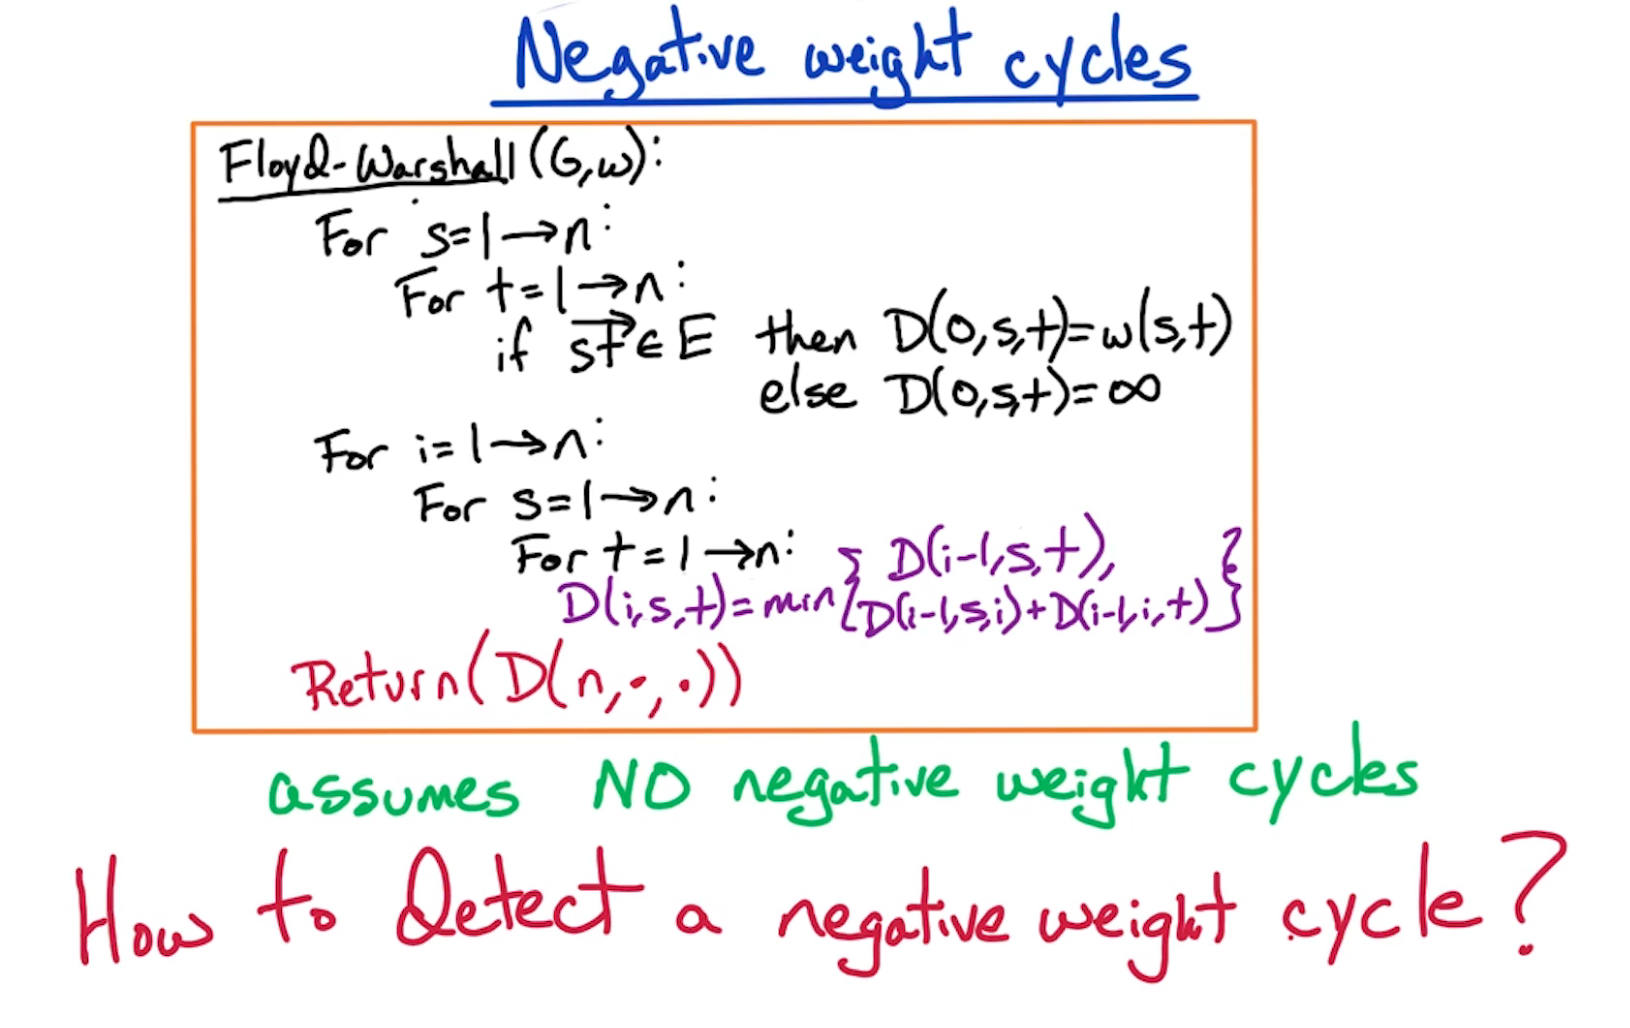 Negative weight cycles
Floyd-Warshall(G,w):
For s=1→n:
For t=1→n:
if st∈E then D(0,s,t)=w(s,t)
else D(0,s,t)=∞
For i=1→n:
For s=1→n:
For t=1→n:
D(i,s,t)=min{D(i-1,s,t),
D(i-1,s,i)+D(i-1,i,t)}
Return(D(n,·,·))
assumes NO negative weight cycles
How to Detect a negative weight cycle?